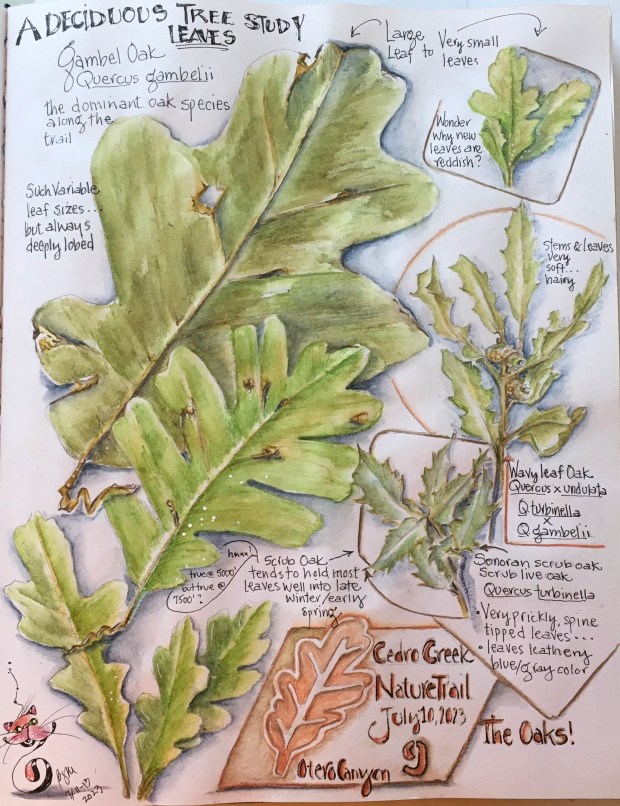 A DECIDUOUS TREE STUDY
LEAVES
Gambel Oak
Quercus gambelii
the dominant oak species
along the
trail
Such Variable
leaf sizes...
but always
deeply lobed
Large
Leaf to
Very small
leaves
Wonder
why new
leaves are
reddish?
Stems & leaves
very
soft...
hairy
Wavy leaf Oak
Quercus x undulata
Q turbinella
x
Q gambelii
Sonoran scrub oak
Scrub live oak
Quercus turbinella
• Very prickly, spine
tipped leaves...
• leaves leathery
blue/gray color
Scrub Oak
tends to hold most
leaves well into late
winter/early
spring
hmmm?
true @ 5000'
but true @
7500'?
Cedro Creek
Nature Trail
July 10, 2023
Otero Canyon
The Oaks!
2023